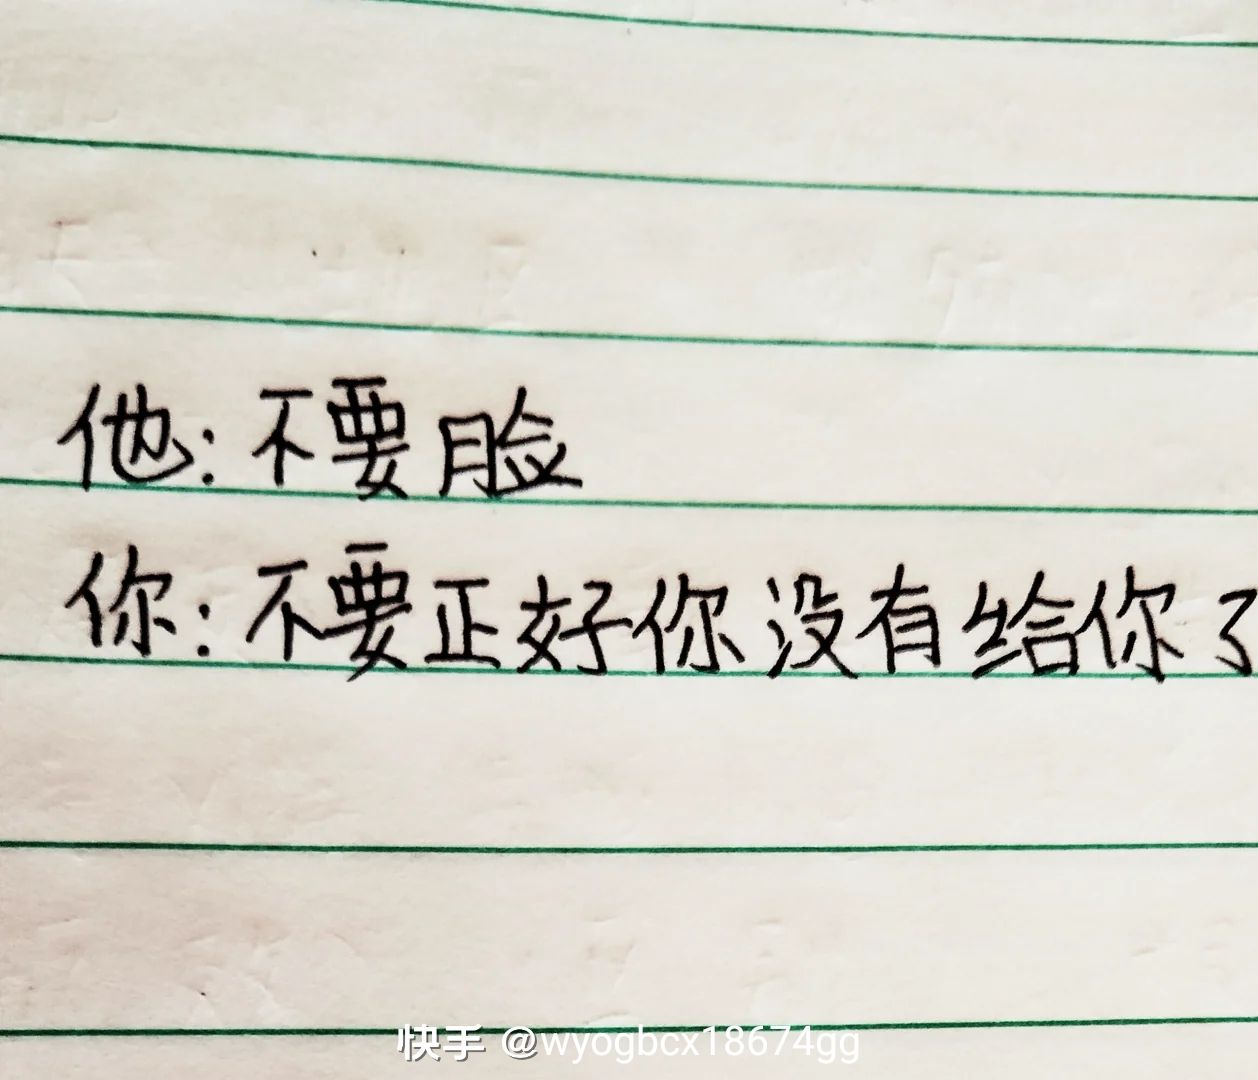 他:不要脸
你:不要正好你没有给你了
快手 @wyogbcx18674gg